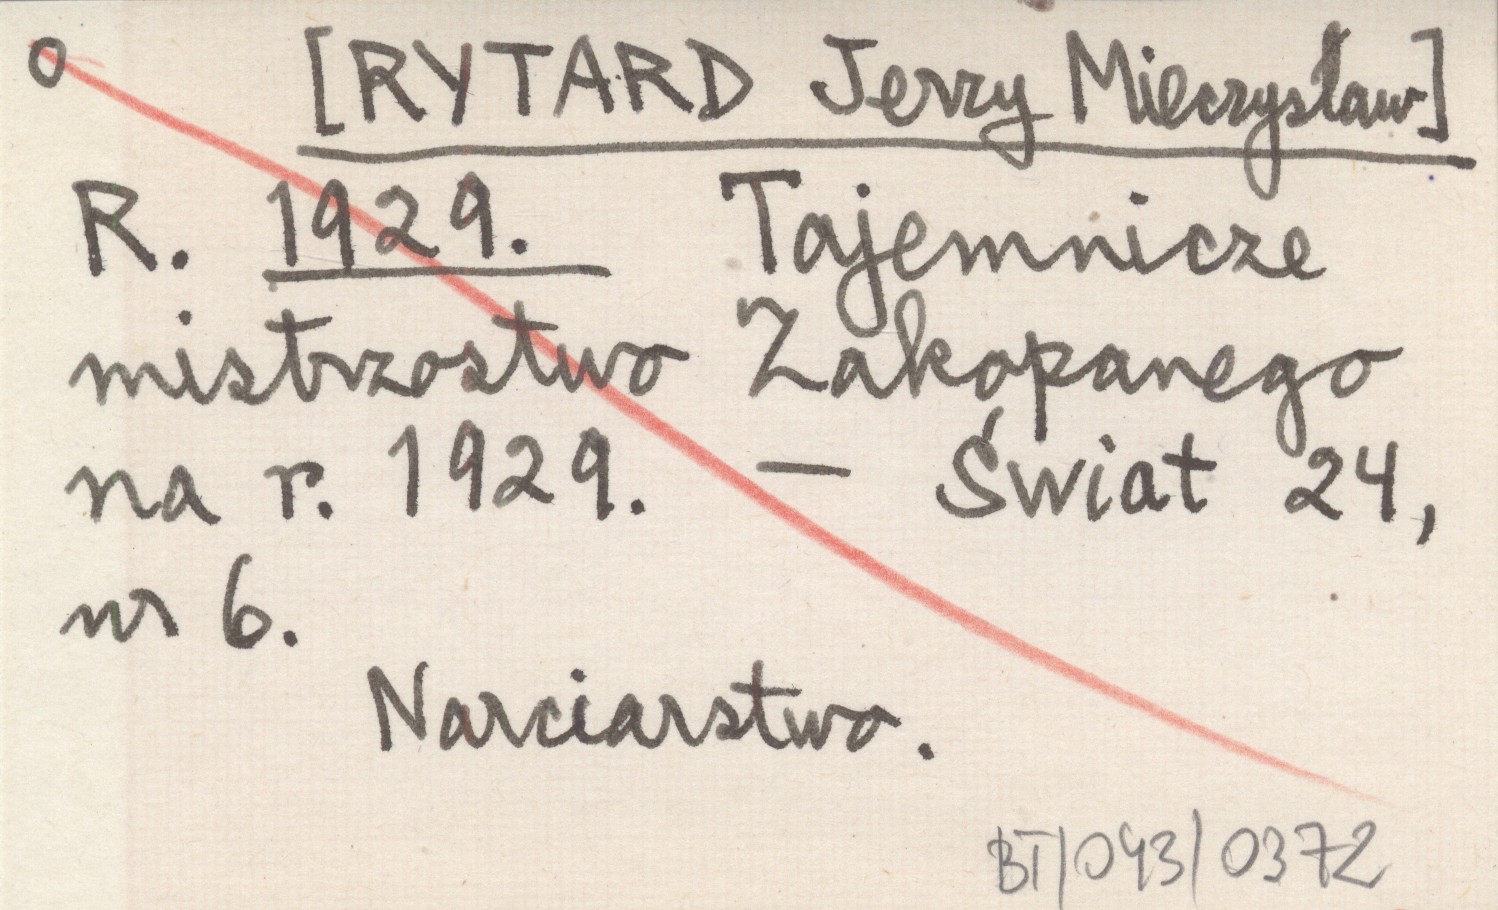 o [RYTARD Jerzy Mieczysław]
R. 1929. Tajemnicze
mistrzostwo Zakopanego
na r. 1929. — Świat 24,
nr 6.
Narciarstwo.
BT/043/0372